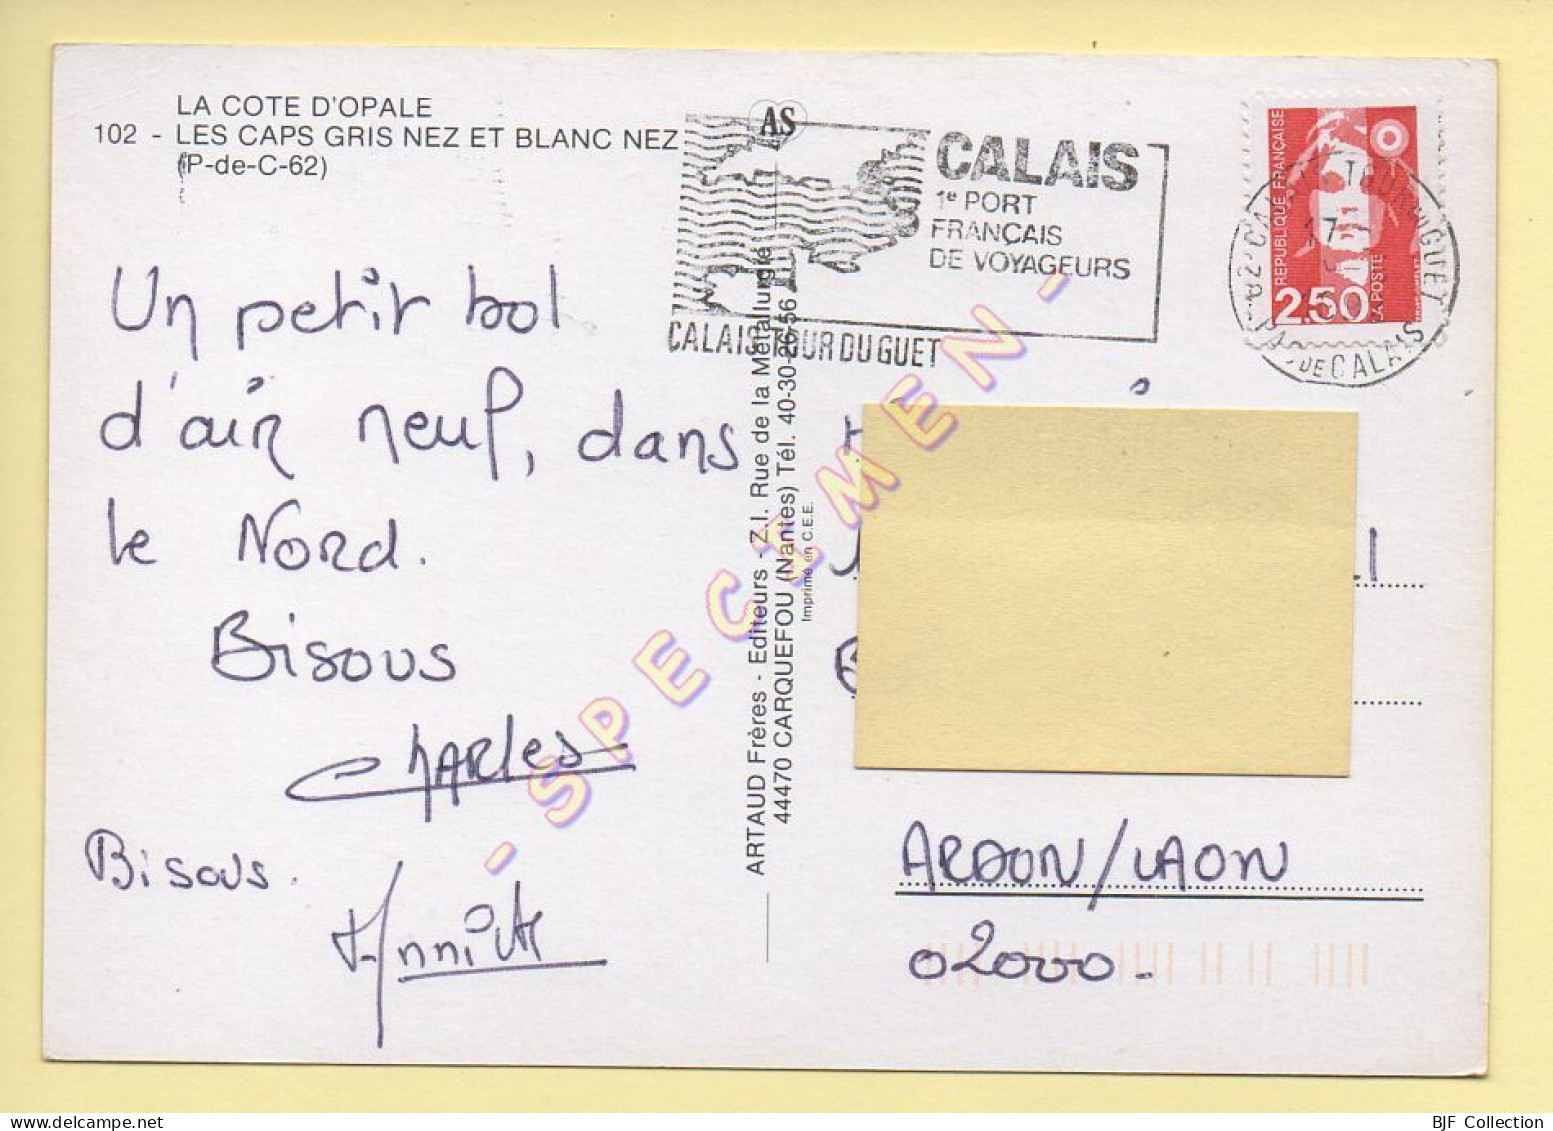 LA COTE D'OPALE
102 - LES CAPS GRIS NEZ ET BLANC NEZ
(P-de-C-62)
AS
CALAIS
1e PORT
FRANÇAIS
DE VOYAGEURS
CALAIS TOUR DU GUET
REPUBLIQUE FRANÇAISE
2.50
LA POSTE
CALAIS TOUR DU GUET
17
PAS DE CALAIS
Un petit bol
d'air neuf, dans
le Nord.
Bisous
CHARLES
Bisous.
Annick
ARTAUD Frères - Editeurs - Z.I. Rue de la Métallurgie
44470 CARQUEFOU (Nantes) Tél. 40-30-26-56
Imprimé en C.E.E.
- SPECIMEN -
ARDON/LAON
02000-
BJF Collection